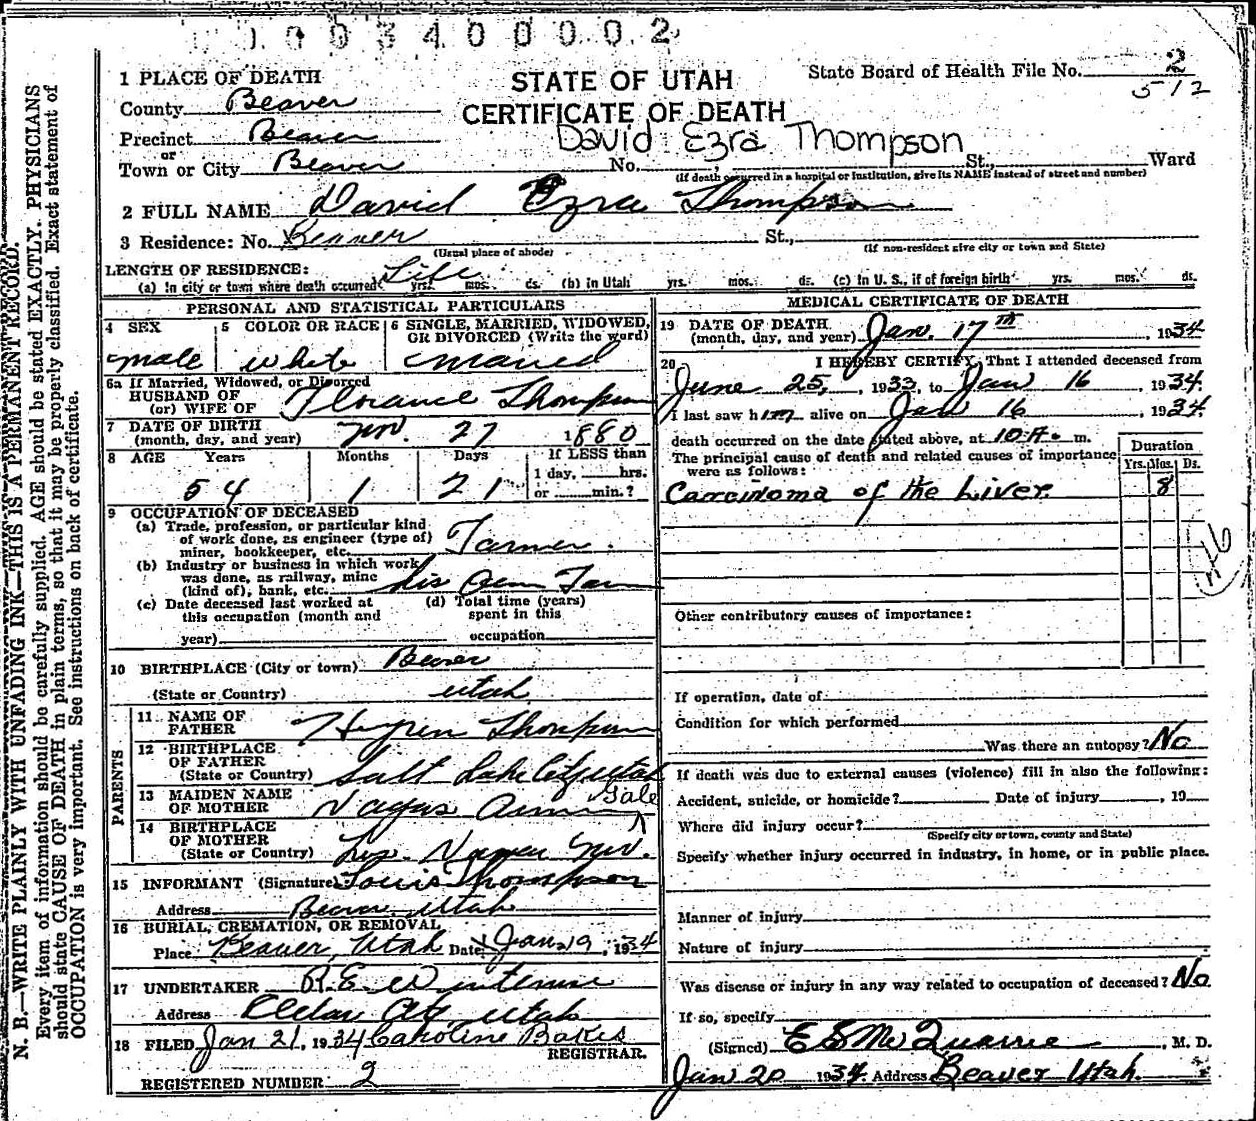 0003400002
1 PLACE OF DEATH
County Beaver
Precinct Beaver
or
Town or City Beaver
STATE OF UTAH
CERTIFICATE OF DEATH
David Ezra Thompson
State Board of Health File No. 2
512
No. , St., Ward
(If death occurred in a hospital or institution, give its NAME instead of street and number)
2 FULL NAME David Ezra Thompson
3 Residence: No. Beaver St.,
(Usual place of abode) (If non-resident give city or town and State)
LENGTH OF RESIDENCE:
(a) In city or town where death occurred Life yrs. mos. ds. (b) in Utah yrs. mos. ds. (c) In U. S., if of foreign birth yrs. mos. ds.
PERSONAL AND STATISTICAL PARTICULARS
4 SEX
male
5 COLOR OR RACE
white
6 SINGLE, MARRIED, WIDOWED,
OR DIVORCED (Write the word)
married
6a If Married, Widowed, or Divorced
HUSBAND OF
(or) WIFE OF Florance Thompson
7 DATE OF BIRTH
(month, day, and year) Nov. 27 1880
8 AGE Years Months Days If LESS than
1 day, hrs.
or min.?
54 1 21
9 OCCUPATION OF DECEASED
(a) Trade, profession, or particular kind
of work done, as engineer (type of)
miner, bookkeeper, etc. Farmer.
(b) Industry or business in which work
was done, as railway, mine
(kind of), bank, etc. his own Farm
(c) Date deceased last worked at
this occupation (month and
year)
(d) Total time (years)
spent in this
occupation
10 BIRTHPLACE (City or town) Beaver
(State or Country) Utah
PARENTS
11 NAME OF
FATHER Thompson
12 BIRTHPLACE
OF FATHER
(State or Country) Salt Lake City Utah
13 MAIDEN NAME
OF MOTHER Gale
14 BIRTHPLACE
OF MOTHER
(State or Country)
15 INFORMANT (Signature) Louis Thompson
Address Beaver Utah
16 BURIAL, CREMATION, OR REMOVAL
Place Beaver, Utah Date Jan 19, 1934
17 UNDERTAKER
Address Cedar City Utah
18 FILED Jan 21, 1934 Caroline Bakes
REGISTRAR.
REGISTERED NUMBER 2
MEDICAL CERTIFICATE OF DEATH
19 DATE OF DEATH
(month, day, and year) Jan. 17th, 1934
20 I HEREBY CERTIFY, That I attended deceased from
June 25, 1933, to Jan 16, 1934.
I last saw him alive on Jan 16, 1934.
death occurred on the date stated above, at 10 A. m.
The principal cause of death and related causes of importance
were as follows:
Duration
Yrs. Mos. Ds.
Carcinoma of the Liver. 8
Other contributory causes of importance:
If operation, date of
Condition for which performed
Was there an autopsy? No
If death was due to external causes (violence) fill in also the following:
Accident, suicide, or homicide? Date of injury , 19
Where did injury occur?
(Specify city or town, county and State)
Specify whether injury occurred in industry, in home, or in public place.
Manner of injury
Nature of injury
Was disease or injury in any way related to occupation of deceased? No.
If so, specify
(Signed) E S McQuarrie, M. D.
Jan 20 1934. Address Beaver Utah.
N. B.—WRITE PLAINLY WITH UNFADING INK—THIS IS A PERMANENT RECORD.
Every item of information should be carefully supplied. AGE should be stated EXACTLY. PHYSICIANS
should state CAUSE OF DEATH in plain terms, so that it may be properly classified. Exact statement of
OCCUPATION is very important. See instructions on back of certificate.